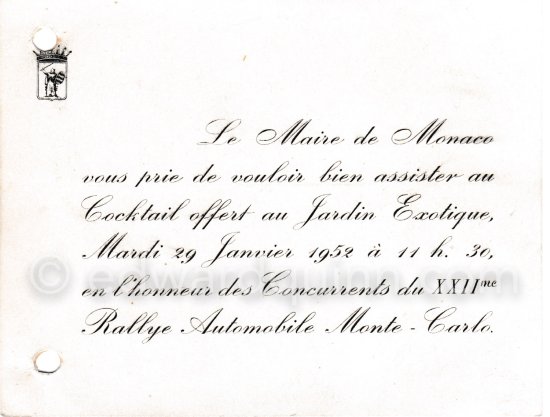 Le Maire de Monaco
vous prie de vouloir bien assister au
Cocktail offert au Jardin Exotique,
Mardi 29 Janvier 1952 à 11 h. 30,
en l'honneur des Concurrents du XXIIme
Rallye Automobile Monte-Carlo.
© edwardquinn.com